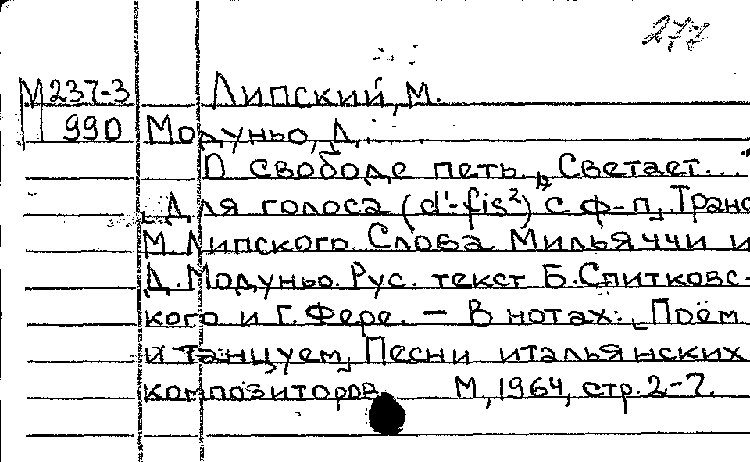 277
М237-3 Липский, М.
990 Модуньо, Д.
О свободе петь „Светает..."
[Для голоса (d'-fis²) с ф-п] Транс
М. Липского Слова Мильяччи и
Д. Модуньо. Рус. текст Б. Спитковс-
кого и Г. Фере. — В нотах: [Поём
и танцуем] Песни итальянских
композиторов М, 1964, стр. 2-7.